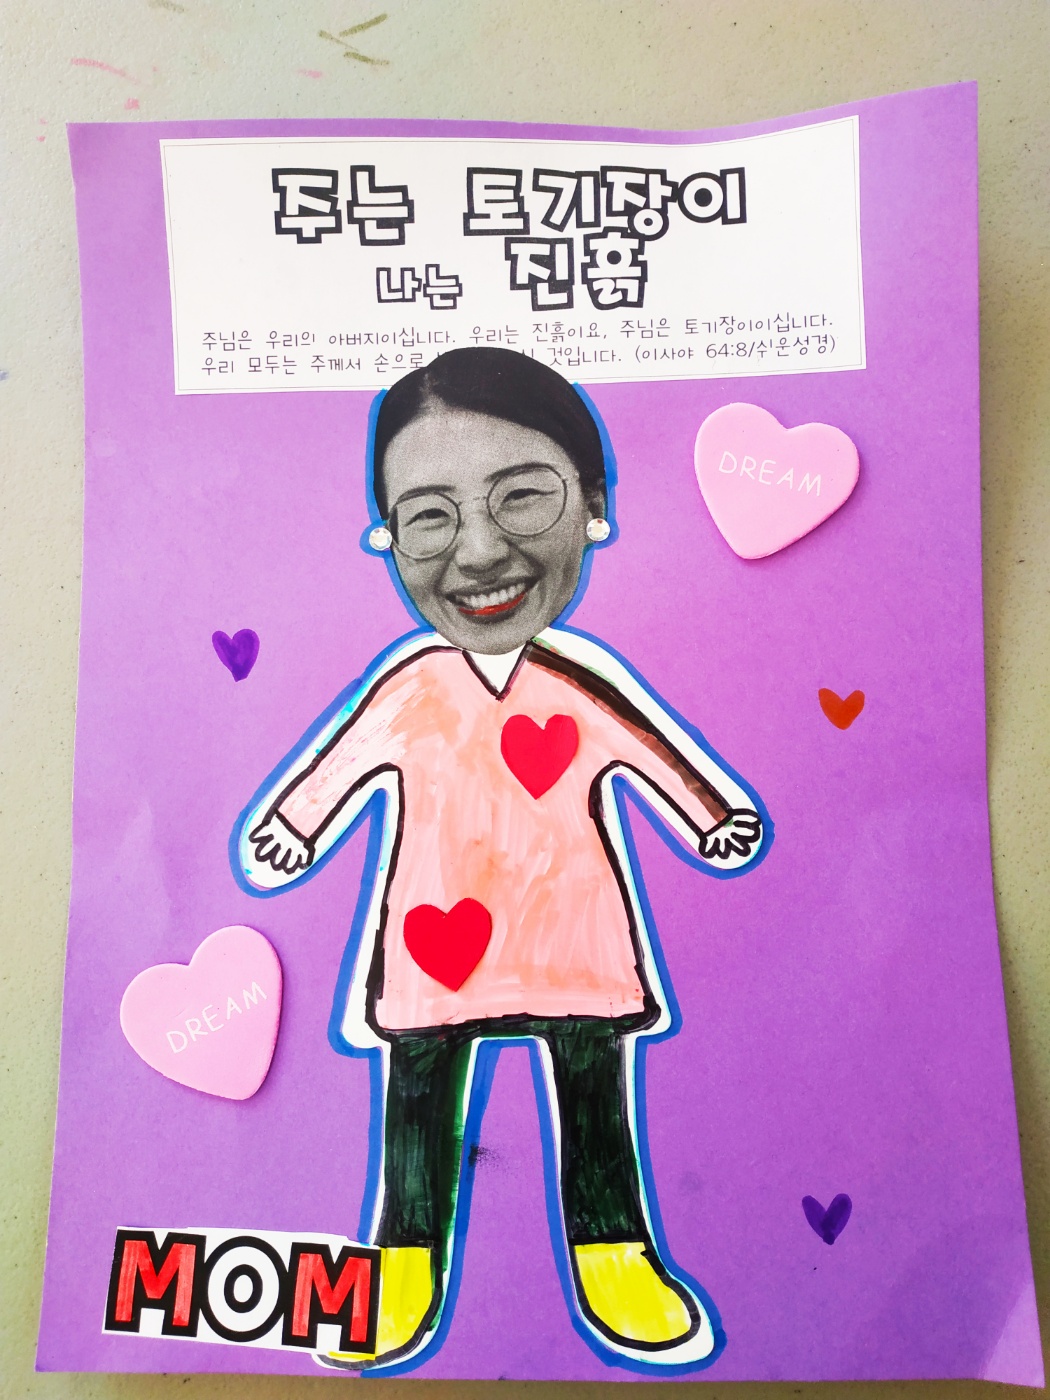 주는 토기장이
나는 진흙
주님은 우리의 아버지이십니다. 우리는 진흙이요, 주님은 토기장이이십니다.
우리 모두는 주께서 손으로 것입니다. (이사야 64:8/쉬운성경)
DREAM
DREAM
MOM